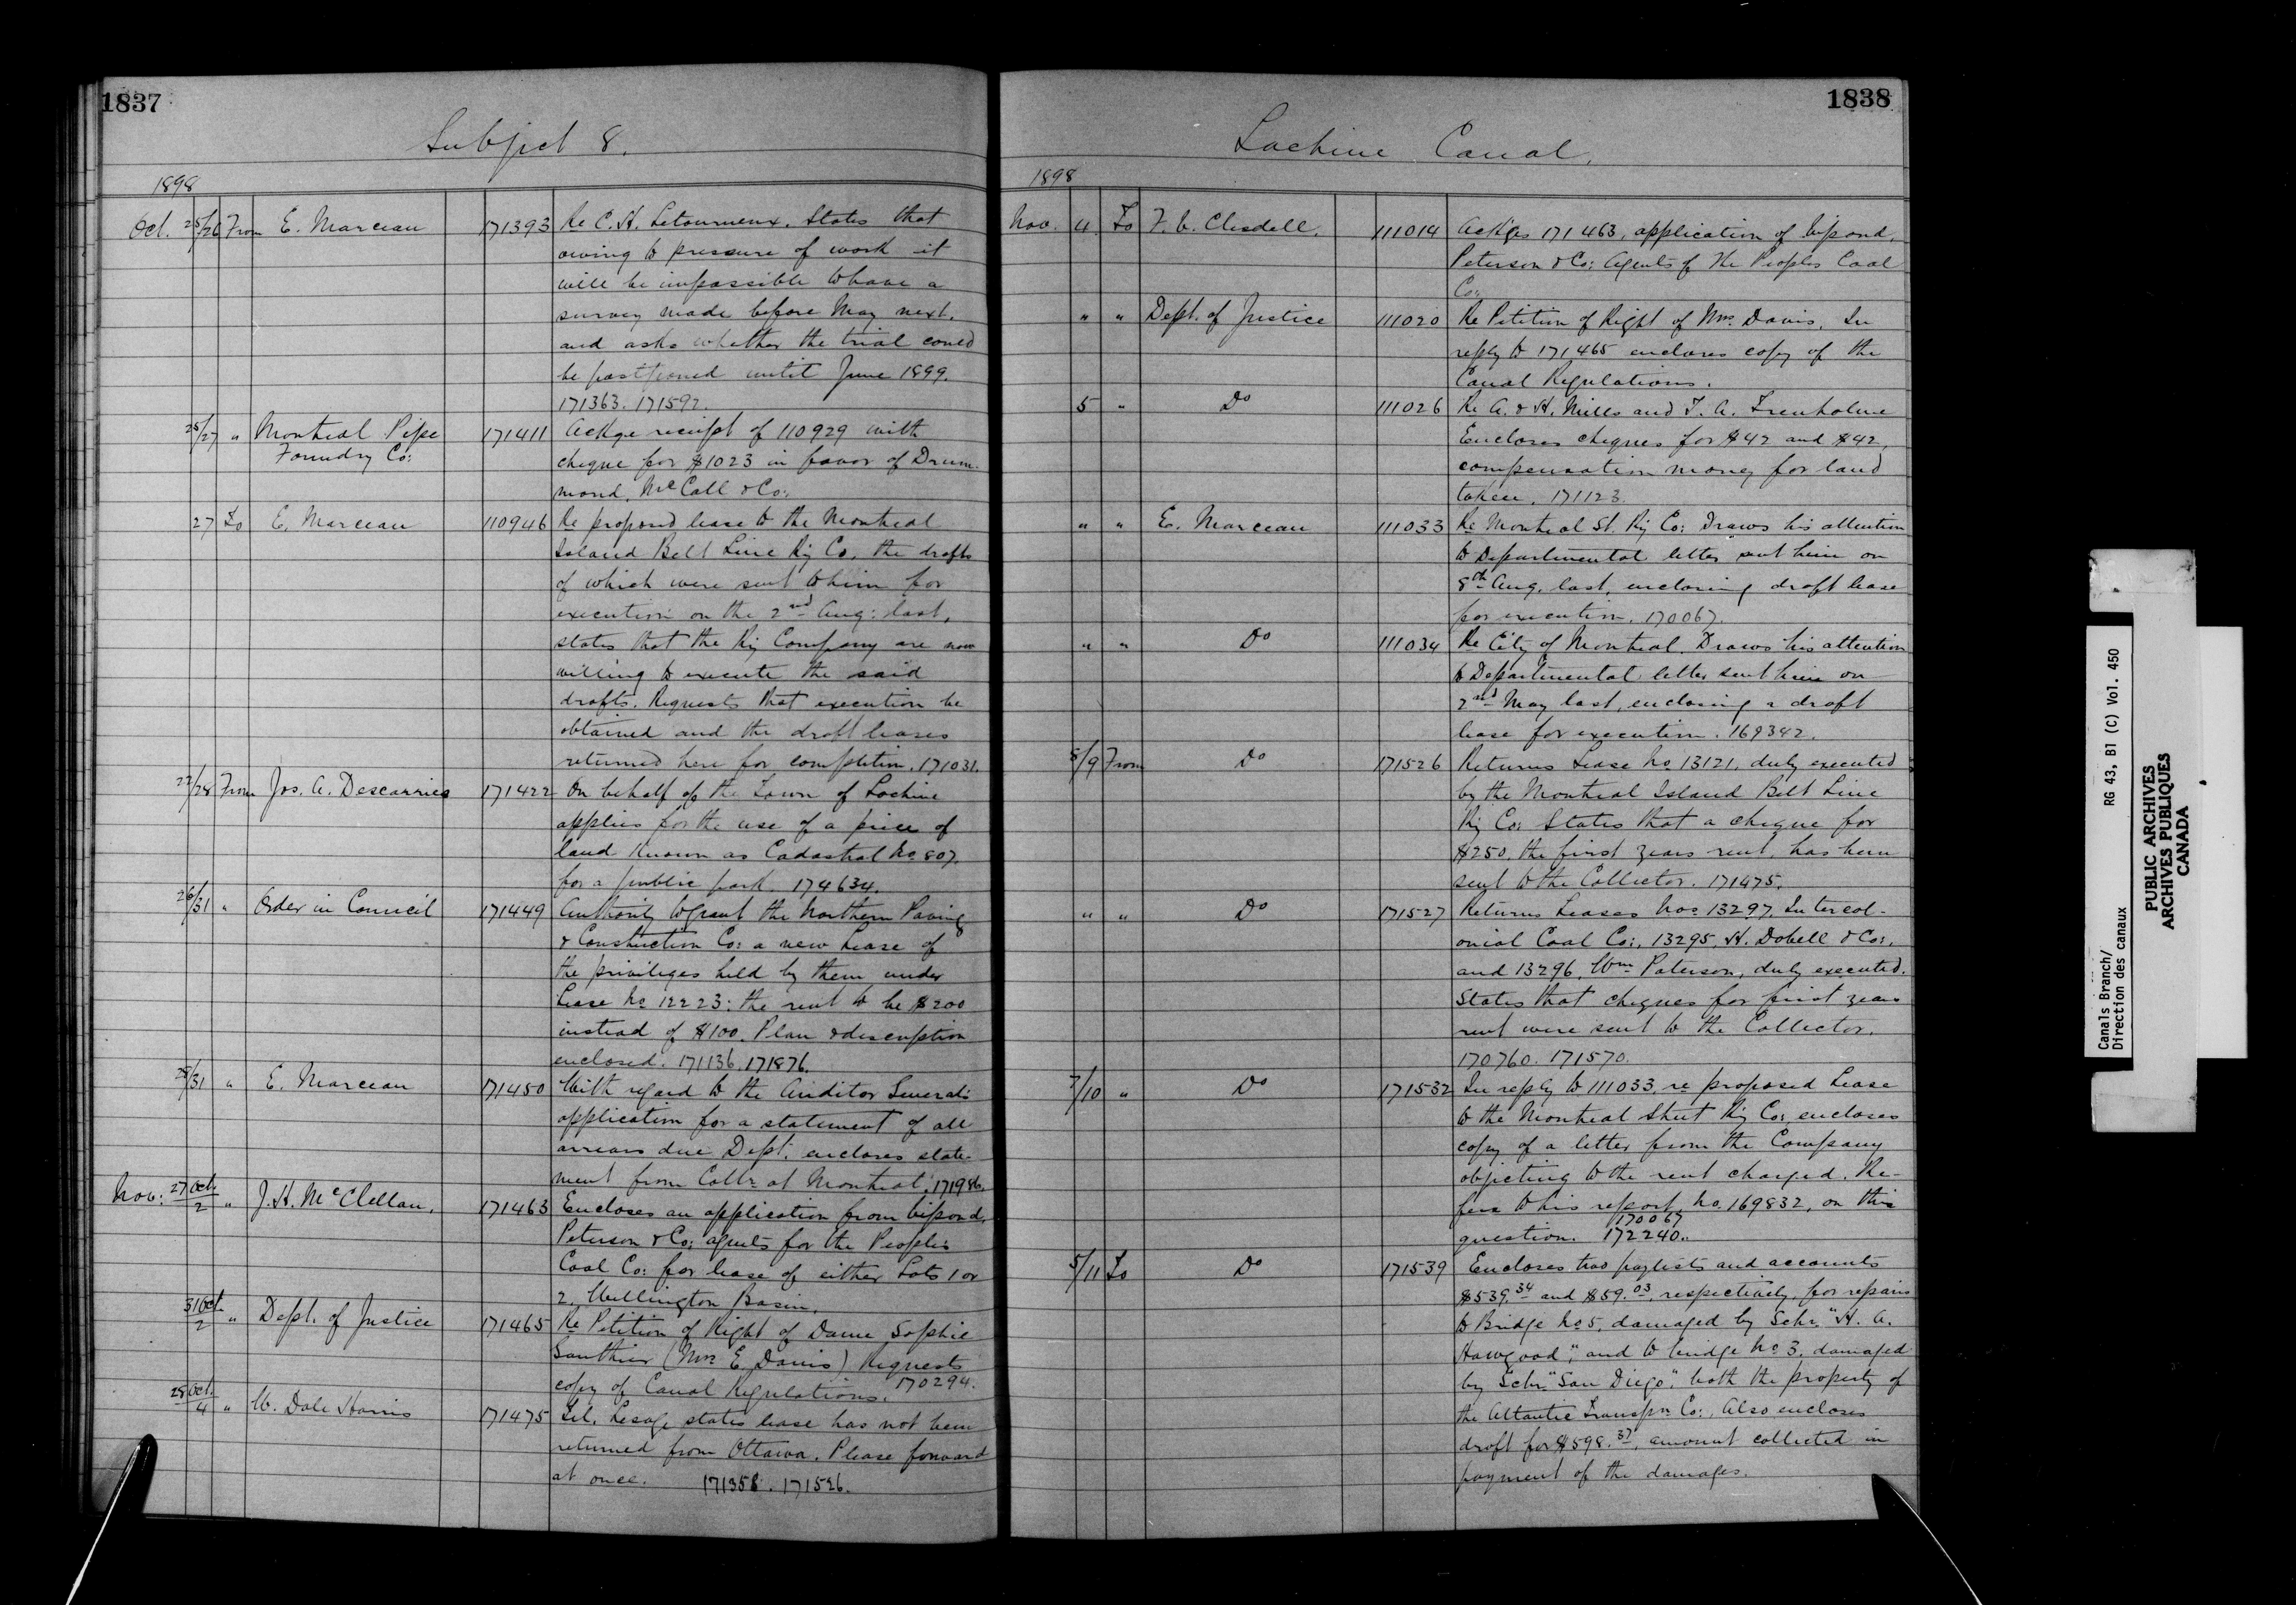 1837
Subject 8.
1898
Oct. 25/26 From E. Marceau 171393 Re C. H. Letourneux. States that
owing to pressure of work it
will be impossible to have a
survey made before May next.
and asks whether the trial could
be postponed until June 1899.
171363. 171592.
25/27 " Montreal Pipe Foundry Co: 171411 Ackge receipt of 110929 with
cheque for $1023 in favor of Drum-
mond, McCall & Co:
27 To E. Marceau 110946 Re proposed lease to the Montreal
Island Belt Line Ry Co. the drafts
of which were sent to him for
execution on the 2nd Aug: last,
states that the Ry Company are now
willing to execute the said
drafts. Requests that execution be
obtained and the draft leases
returned here for completion. 171031.
27/28 From Jos. A. Descarries 171422 On behalf of the Town of Lachine
applies for the use of a piece of
land known as Cadastral No 807.
for a public park. 174634.
26/31 " Order in Council 171449 Authority to grant the Northern Paving
& Construction Co: a new Lease of
the privileges held by them under
Lease No 12223: the rent to be $200
instead of $100. Plan & description
enclosed. 171136. 171876.
28/31 " E. Marceau 171450 With regard to the Auditor General's
application for a statement of all
arrears due Dept. encloses state-
ment from Collr at Montreal. 171986.
Nov: 27 Oct./2 " J. H. McClellan. 171463 Encloses an application from
Peterson & Co: agents for the People's
Coal Co: for lease of either Lots 1 or
2. Wellington Basin.
31 Oct./2 " Dept. of Justice 171465 Re Petition of Right of Dame Sophie
Gauthier (Mrs E. Davis) Requests
copy of Canal Regulations. 170294.
28 Oct./4 " W. Dale Harris 171475 Tel. Lesage states lease has not been
returned from Ottawa. Please forward
at once. 171358. 171526.
1838
Lachine Canal.
1898
Nov. 4. To F. C. Clesdell. 111014 Ackges 171463, application of
Peterson & Co: Agents of The Peoples Coal
Co:
" " Dept. of Justice 111020 Re Petition of Right of Mrs Davis. In
reply to 171465 encloses copy of the
Canal Regulations.
5 " Do 111026 Re A. & H. Mills and T. A. Trenholme
Encloses cheques for $42 and $42,
compensation money for land
taken. 171123.
" " E. Marceau 111033 Re Montreal St. Ry Co: Draws his attention
to Departmental letter sent him on
8th Aug. last, enclosing draft lease
for execution. 170067.
" " Do 111034 Re City of Montreal. Draws his attention
to Departmental letter sent him on
2nd May last, enclosing a draft
lease for execution. 169342.
8/9 From Do 171526 Returns Lease No 13121, duly executed
by the Montreal Island Belt Line
Ry Co: States that a cheque for
$250, the first years rent, has been
sent to the Collector. 171475.
" " Do 171527 Returns Leases Nos 13297. Intercol-
onial Coal Co:, 13295, H. Dobell & Co:,
and 13296, Wm Paterson, duly executed.
States that cheques for first years
rent were sent to the Collector.
170760. 171570.
7/10 " Do 171532 In reply to 111033 re proposed Lease
to the Montreal Street Ry Co: encloses
copy of a letter from the Company
objecting to the rent charged. Re-
fers to his report No. 169832, on this
170067
question. 172240.
5/11 To Do 171539 Encloses two paylists and accounts
$539.34 and $59.03, respectively, for repairs
to Bridge No 5, damaged by Schr. "H. A.
Hawgood", and to bridge No 3, damaged
by Schr. "San Diego", both the property of
the Altantic Transpn Co:. Also encloses
draft for $598.37, amount collected in
payment of the damages.
Canals Branch/
Direction des canaux
RG 43, B1 (C) Vol. 450
PUBLIC ARCHIVES
ARCHIVES PUBLIQUES
CANADA